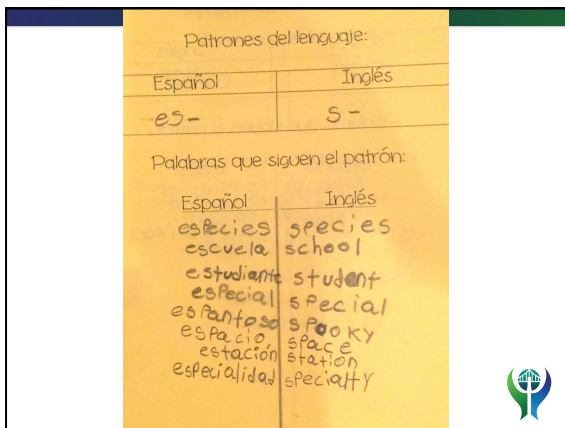 Patrones del lenguaje:
Español Inglés
es- s-
Palabras que siguen el patrón:
Español Inglés
especies species
escuela school
estudiante student
especial special
espantoso spooky
espacio space
estación station
especialidad specialty